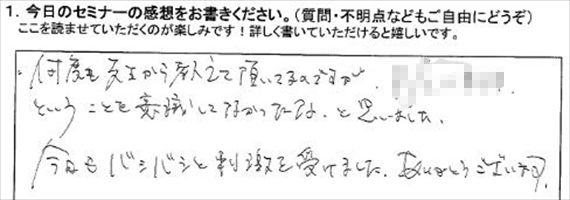 1. 今日のセミナーの感想をお書きください。(質問・不明点などもご自由にどうぞ)
ここを読ませていただくのが楽しみです！詳しく書いていただけると嬉しいです。
・何度も先生から教えて頂いてるのですが、
ということを意識してなかったなぁ、と思いました。
今日もバシバシと刺激を受けました。ありがとうございます。